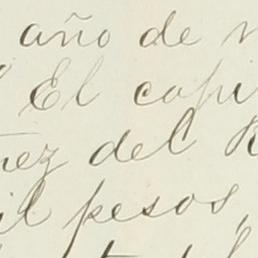 año de
El capi
ez del R
il pesos,